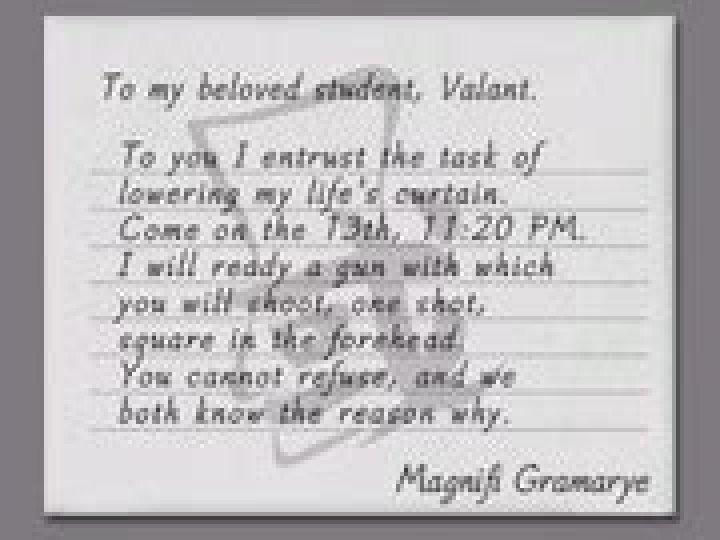 To my beloved student, Valant.
To you I entrust the task of
lowering my life's curtain.
Come on the 13th, 11:20 PM.
I will ready a gun with which
you will shoot, one shot,
square in the forehead.
You cannot refuse, and we
both know the reason why.
Magnifi Gramarye